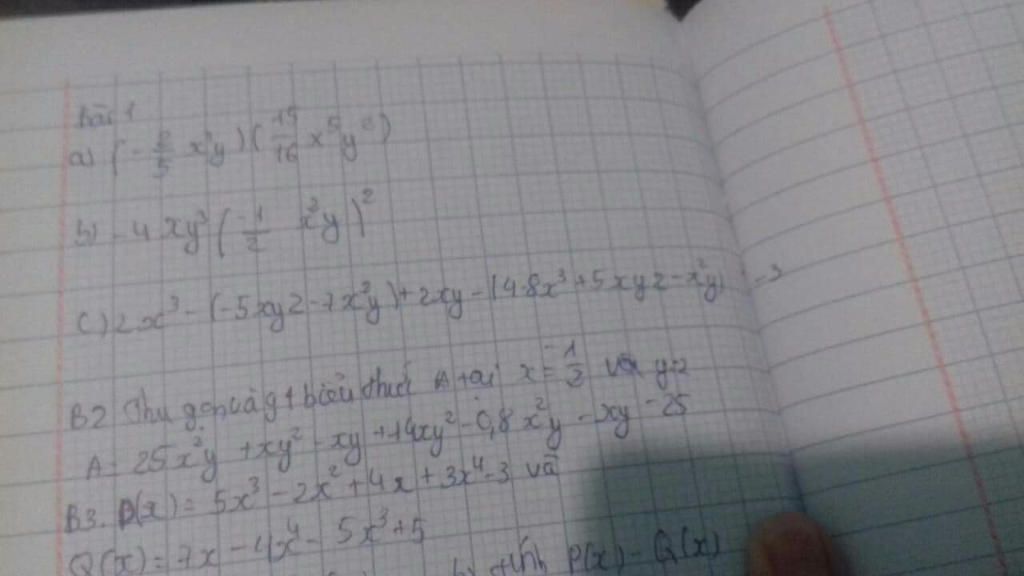 Bài 1
a) (-2/5 x²y)(15/16 x⁵y²)
b) -4xy³(-1/2 x²y)²
c) 2x³ - (-5xyz - 7x²y) + 2xy - (4,8x³ + 5xyz - x²y) - 3
B2 Thu gọn và giá trị biểu thức A tại x = -1/2 và y=2
A = 25x²y + xy² - xy + 14xy² - 0,8x²y - xy - 25
B3. P(x) = 5x³ - 2x² + 4x + 3x⁴ - 3 và
Q(x) = 7x - 4x⁴ - 5x³ + 5
b) tính P(x) - Q(x)